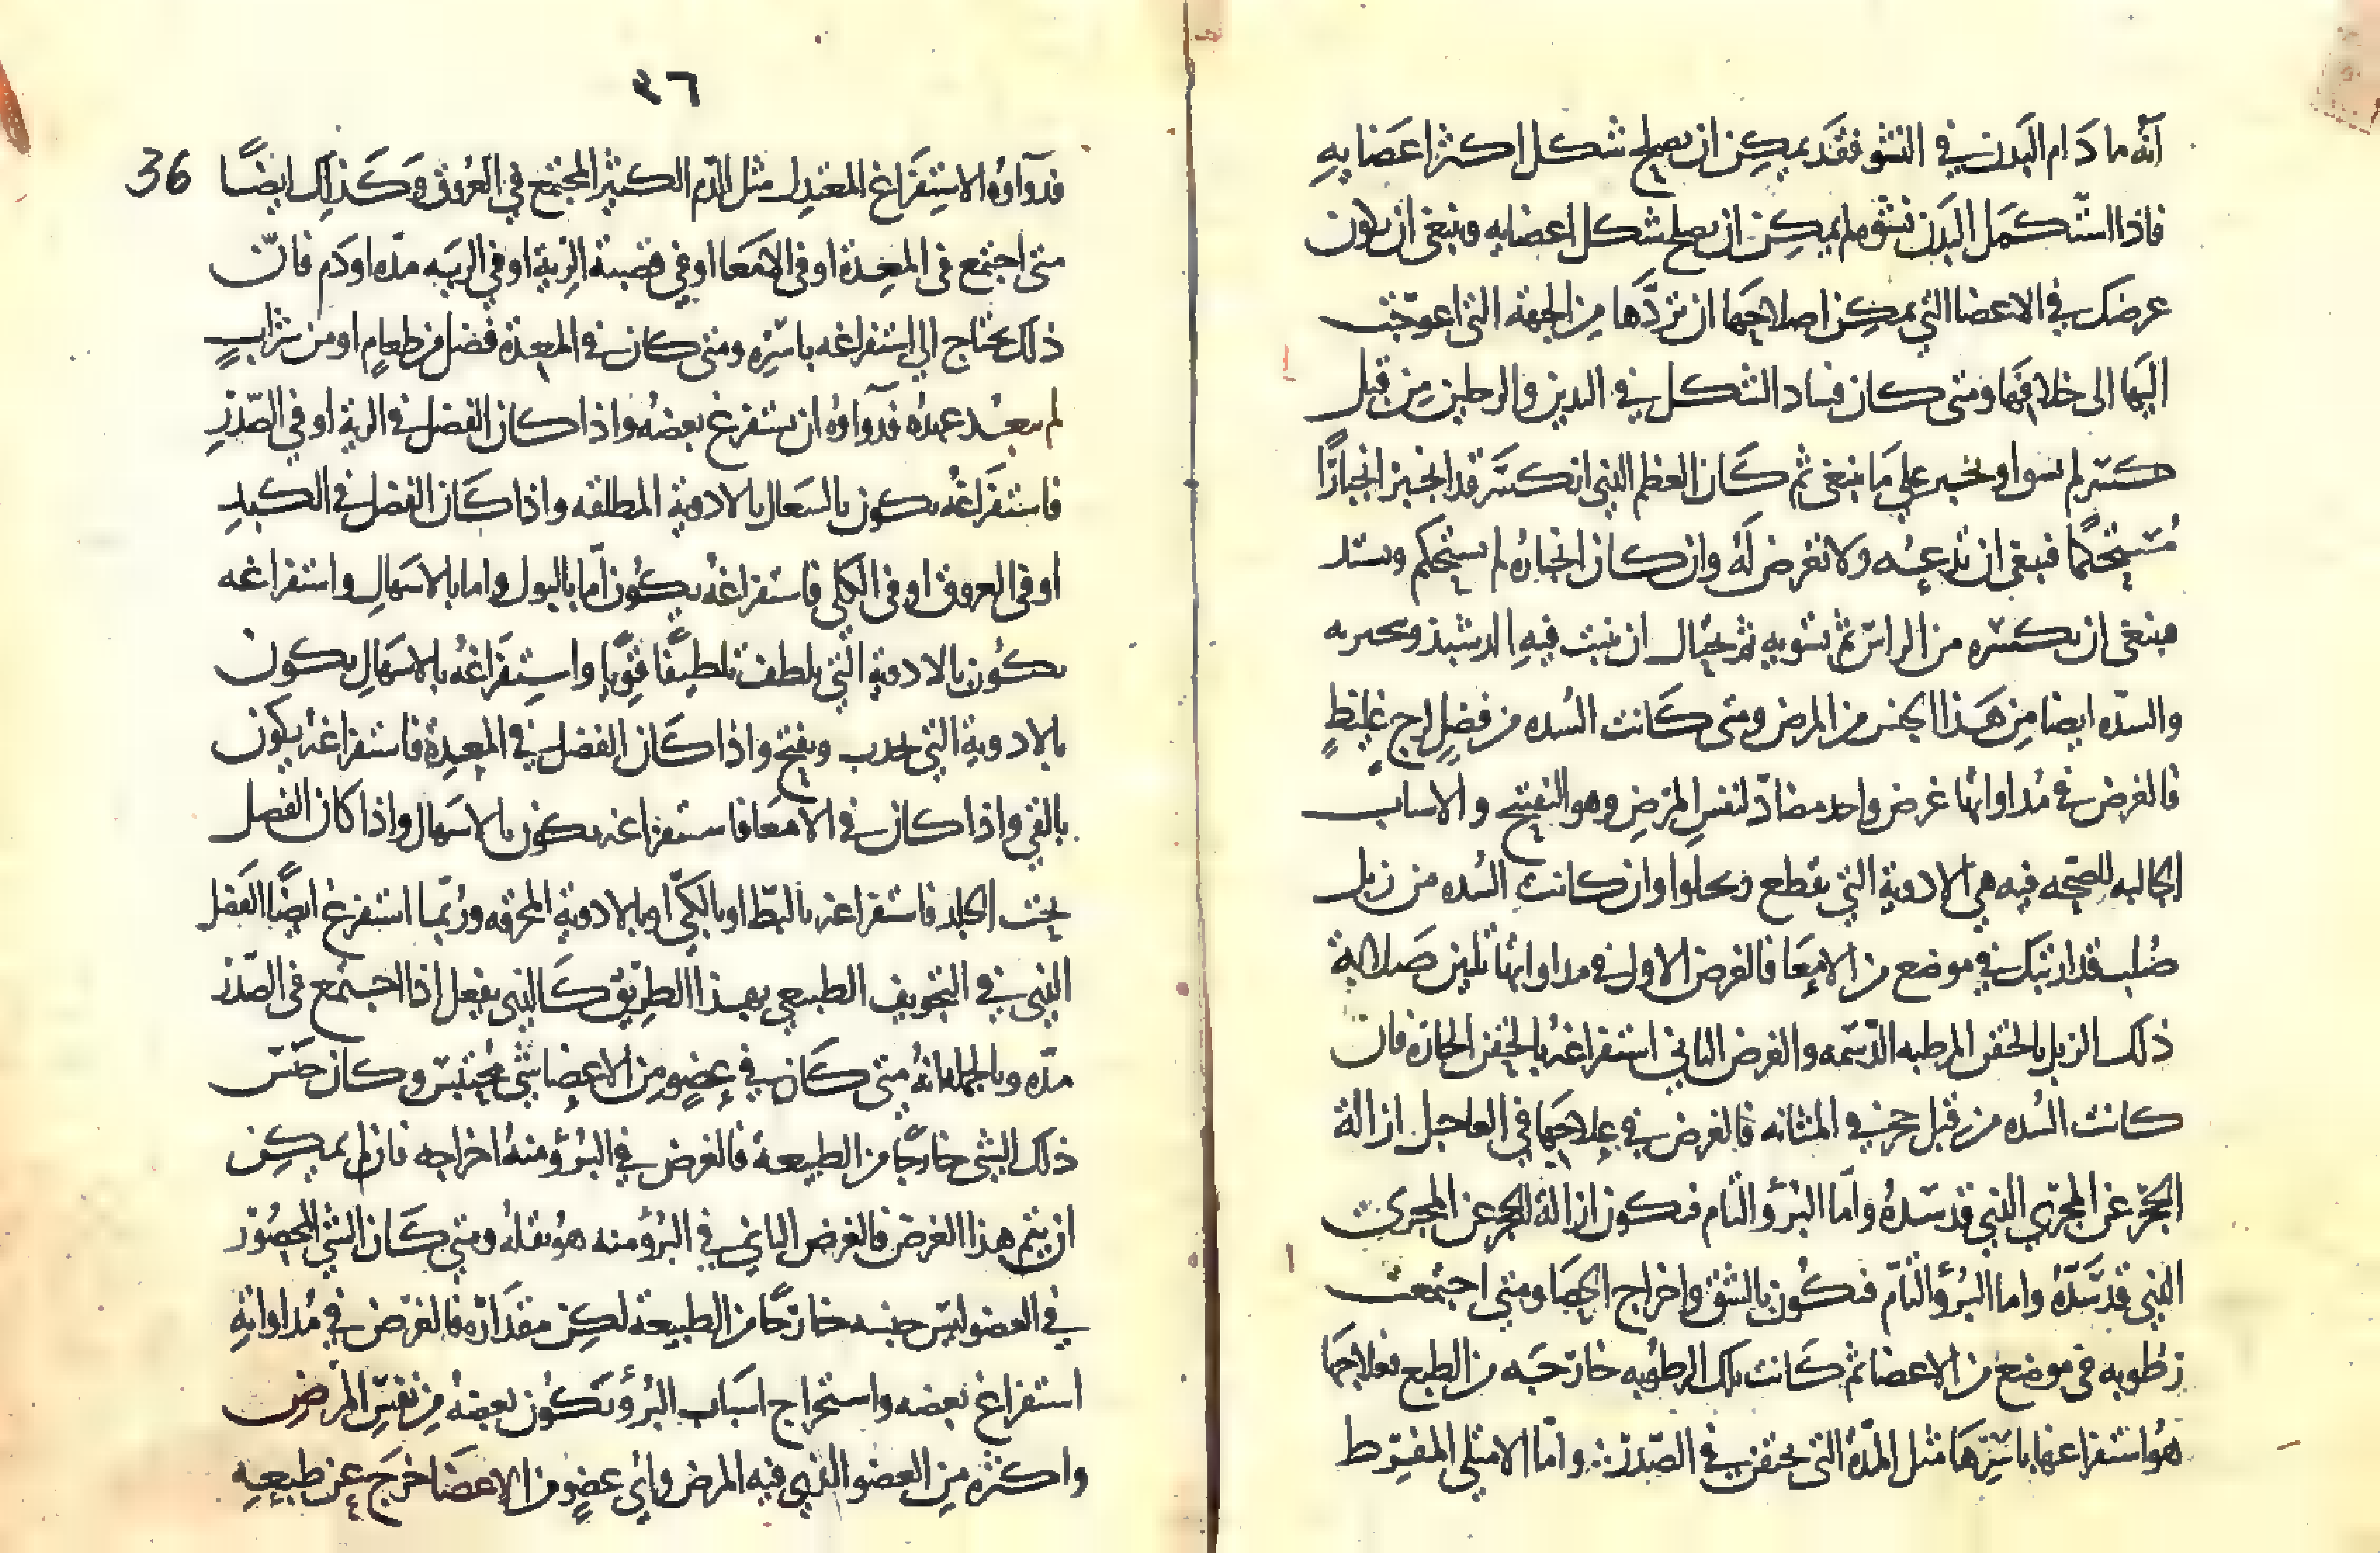 أنه ما دام البدن في النشو فقد يمكن ان يصلح شكل اكثر اعضايه
فاذا استكمل البدن نشوه لم يمكن ان يصلح شكل اعضايه فينبغي ان يكون
غرضك في الاعضا التي يمكن اصلاحها ان تردها من الجهة التي اعوجت
اليها الى خلافها ومتى كان فساد الشكل في اليدين والرجلين من قبل
كسر لم يسوا ويجبر علي ما ينبغي ثم كان العظم الذي انكسر قد انجبر انجبارًا
مُستحكمًا فينبغي ان تدعه ولا تعرض له وان كان انجباره لم يستحكم ويشتد
فينبغي ان تكسره من الراس ثم تسويه ثم تحتال ان ينبت فيه الدشبذ وتجبره
والسدّه ايضا من هذا الجنس من المرض ومتى كانت السُده من فضلٍ لزج غليظٍ
فالغرض في مُداواتها غرض واحد مضادّ لنفس المرض وهو التفتيح والاسباب
الجالبه للصحه فيه هي الادوية التي تقطع وتجلوا وان كانت السُده من زبل
صُلب قد ارتبك في موضع من الامعا فالغرض الاول في مداواتها تليين صلابة
ذلك الزبل بالحقن المرطبه الدسمه والغرض الثاني استفراغه بالحقن الحاره فان
كانت السُده من قبل حجر في المثانه فالغرض في علاجها في العاجل ازالة
الحجر عن المجري الذي قد سدهُ واما البُرؤ التام فيكون ازالة الحجر عن المجرى
الذي قد سَدّهُ واما البُرؤ التامّ فيكون بالشق واخراج الحصا ومتي اجتمعت
رطوبه في موضع من الاعضا ثم كانت تلك الرطوبه خارجه من الطبع فعلاجها
هو استفراغها باسرها مثل المدّة التي تحتقن في الصدر ∴ وامّا الامتلي المفرط
٣٦
36
فدوآوه الاستفراغ المعتدل مثل الدم الكثير المجتمع في العروق وكذلك ايضًا
متى اجتمع في المعدة او في الامعا او في قصبة الرية او في الريه مدّه او دم فانّ
ذلك يحتاج الي استفراغه باسره ومتى كان في المعدة فضل من طعامٍ او من شرابٍ
لم يبعُد عهدُه فدوآوه ان يستفرغ بعضهُ واذا كان الفضل في الرية او في الصدر
فاستفراغه يكون بالسعال بالادوية الملطفه واذا كان الفضل في الكبد
او في العروق او في الكلي فاستفراغه يكون امّا بالبول واما بالاسهال واستفراغه
يكون بالادوية التي تلطف تلطيفًا قويًا واستفراغه بالاسهال يكون
بالادوية التي تجذب وتفتح واذا كان الفضل في المعدة فاستفراغه يكون
بالقي واذا كان في الامعا فاستفراغه يكون بالاسهال واذا كان الفضل
تحت الجلد فاستفراغه بالبطّ او بالكيّ او بالادوية المحرقه وربّما استفرغ ايضًا الفضل
الذي في التجويف الطبيعي بهذا الطريق كالذي يفعل اذا اجتمع في الصدر
مدّه وبالجمله انه متى كان في عضوٍ من الاعضا شيٌ محتبس وكان جنس
ذلك الشي خارجًا من الطبيعة فالغرض في البُرؤ منهُ اخراجه فان لم يمكن
ان يتم هذا الغرض فالغرض الثاني في البُرؤ منه هو نقله ومتي كان الشي المحصور
في العضو ليس جنسه خارجًا من الطبيعة لكن مقداره فالغرض في مُداواته
استفراغ بعضه واستخراج اسباب البُرؤ تكون بعضهُ من نفس المرض
واكثره من العضو الذي فيه المرض واي عضوٍ من الاعضا خرج عن طبيعته